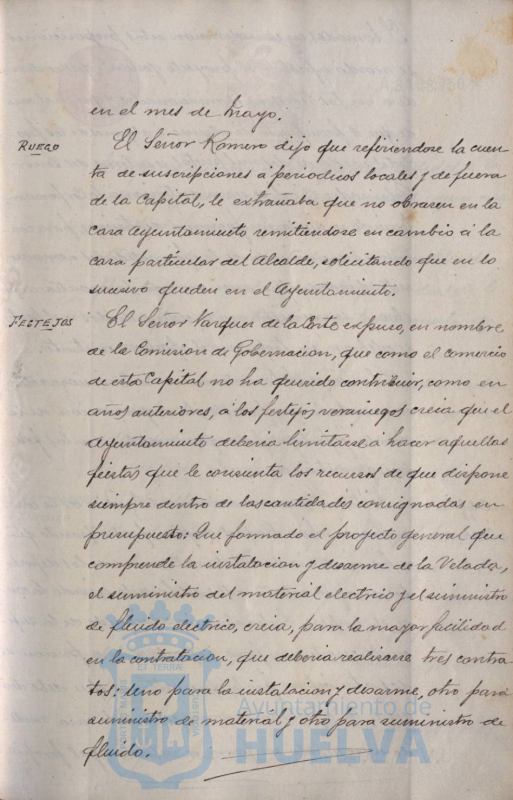 en el mes de Mayo.
RUEGO
El Señor Romero dijo que refiriendose la cuen
ta de suscripciones á periodicos locales y de fuera
de la Capital, le extrañaba que no obrasen en la
casa Ayuntamiento remitiendose en cambio á la
casa particular del Alcalde, solicitando que en lo
sucesivo queden en el Ayuntamiento.
FESTEJOS
El Señor Vazquez de la Corte expuso, en nombre
de la Comision de Gobernacion, que como el comercio
de esta Capital no ha querido contribuir, como en
años anteriores, á los festejos veraniegos creia que el
Ayuntamiento deberia limitarse á hacer aquellas
fiestas que le consienta los recursos de que dispone
siempre dentro de las cantidades consignadas en
presupuesto: Que formado el proyecto general que
comprende la instalacion y desarme de la Velada,
el suministro del material electrico y el suministro
de fluido electrico, creia, para la mayor facilidad
en la contratacion, que deberia realizarse tres contra
tos: uno para la instalacion y desarme, otro para
suministro de material y otro para suministro de
fluido.
Ayuntamiento de
HUELVA